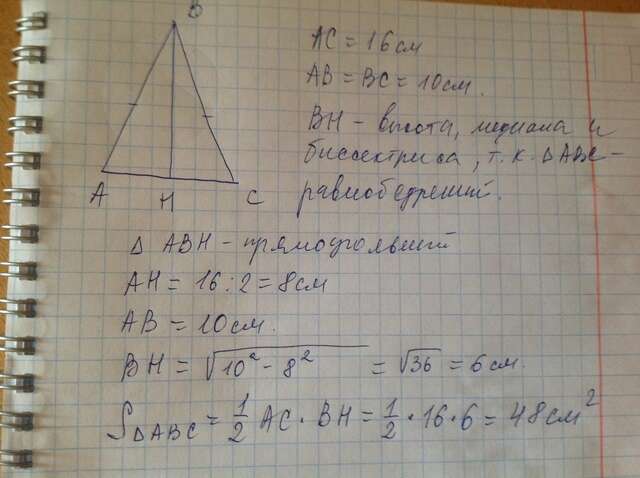 B
A H C
AC = 16 см
AB = BC = 10 см.
BH – высота, медиана и
биссектриса, т.к. ΔABC –
равнобедренный.
Δ ABH – прямоугольный
AH = 16 : 2 = 8 см
AB = 10 см.
BH = √(10² – 8²) = √36 = 6 см.
S ΔABC = 1/2 AC · BH = 1/2 · 16 · 6 = 48 см²